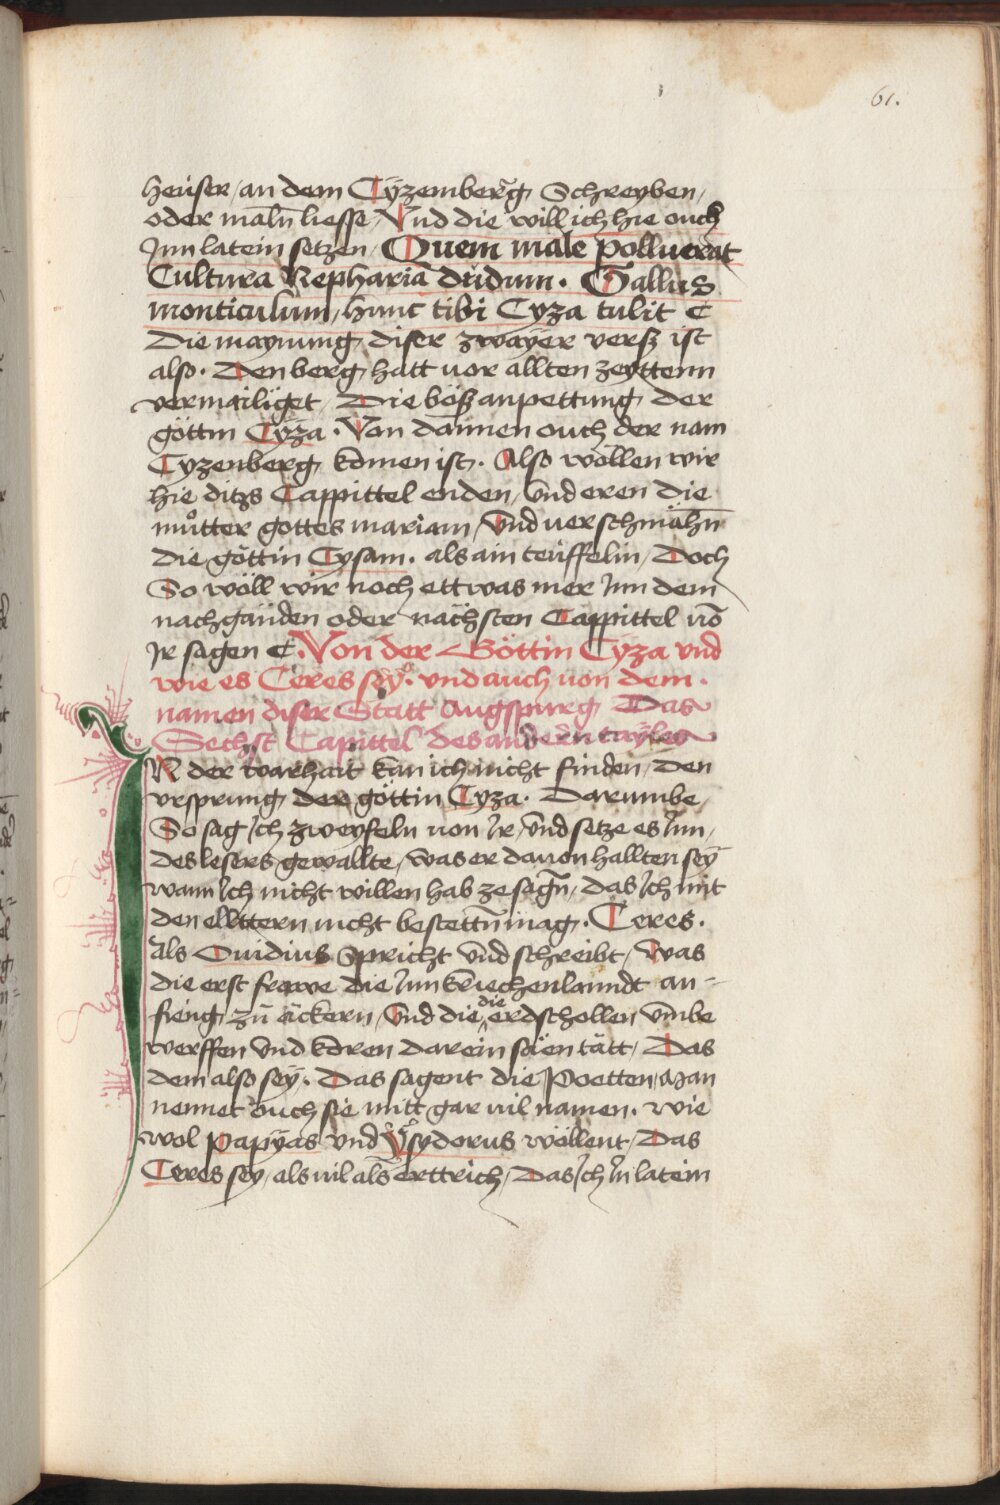 61.
heüser / an dem Cÿzemberg, Schreyben /
oder maln̄ liesse / Vnd die will ich hie ouch
Jnn latein setzen / Quem male polluerat
Cultura Nepharia dudum. Gallus
monticulum / hunc tibi Cyza tulit C
Die maynung, diser zwaÿer versz ist
also. Den berg, hatt vor allten zeyttenn
vermailiget / Die bösz anpettung, der
göttin Cÿza. Von dannen ouch der nam
Cyzenberg, komen ist. Also wöllen wir
hie ditzs Cappittel enden / Vnd eren die
můtter gottes mariam / Vnd verschmähn̄
die göttin Cysam. als ain teüffelin / Doch
So wöll wir noch ettwas mer Jnn dem
nachgänden oder nächsten Cappittel vō
Jr sagen C. Von der Göttin Cÿza vnd
wie es Ceres seÿ. vnd auch von dem.
namen diser Statt Augspurg, Das
Sechst Capittel des andern tayles
IN der warhait kan ich nicht finden / den
vrsprung, der göttin Cyza. Darumbe,
So sag Jch zweyfeln von Jr / Vnd setze es Jnn,
des lesers gewallte / was er dauon hallten seÿ
wann Jch nicht willen hab ze sagn̄ / das Jch mit
den ellttern nicht bestettn̄ mag. Ceres.
Als Ouidius spricht Vnd schreibt / Was
die erst frawe die Jnn kriechenlanndt an=
fieng, zů äckern / Vnd die die erdschollen Vmbe
werffen Vnd koren darein säen tätt / Das
dem also seÿ. Das sagent die Poetten / Man
nennet ouch sie mitt gar vil namen. wie
wol papÿas vnd Ysyderus wöllent / Das
Ceres sey / als vil als erttrich / Das Jch Jn latein